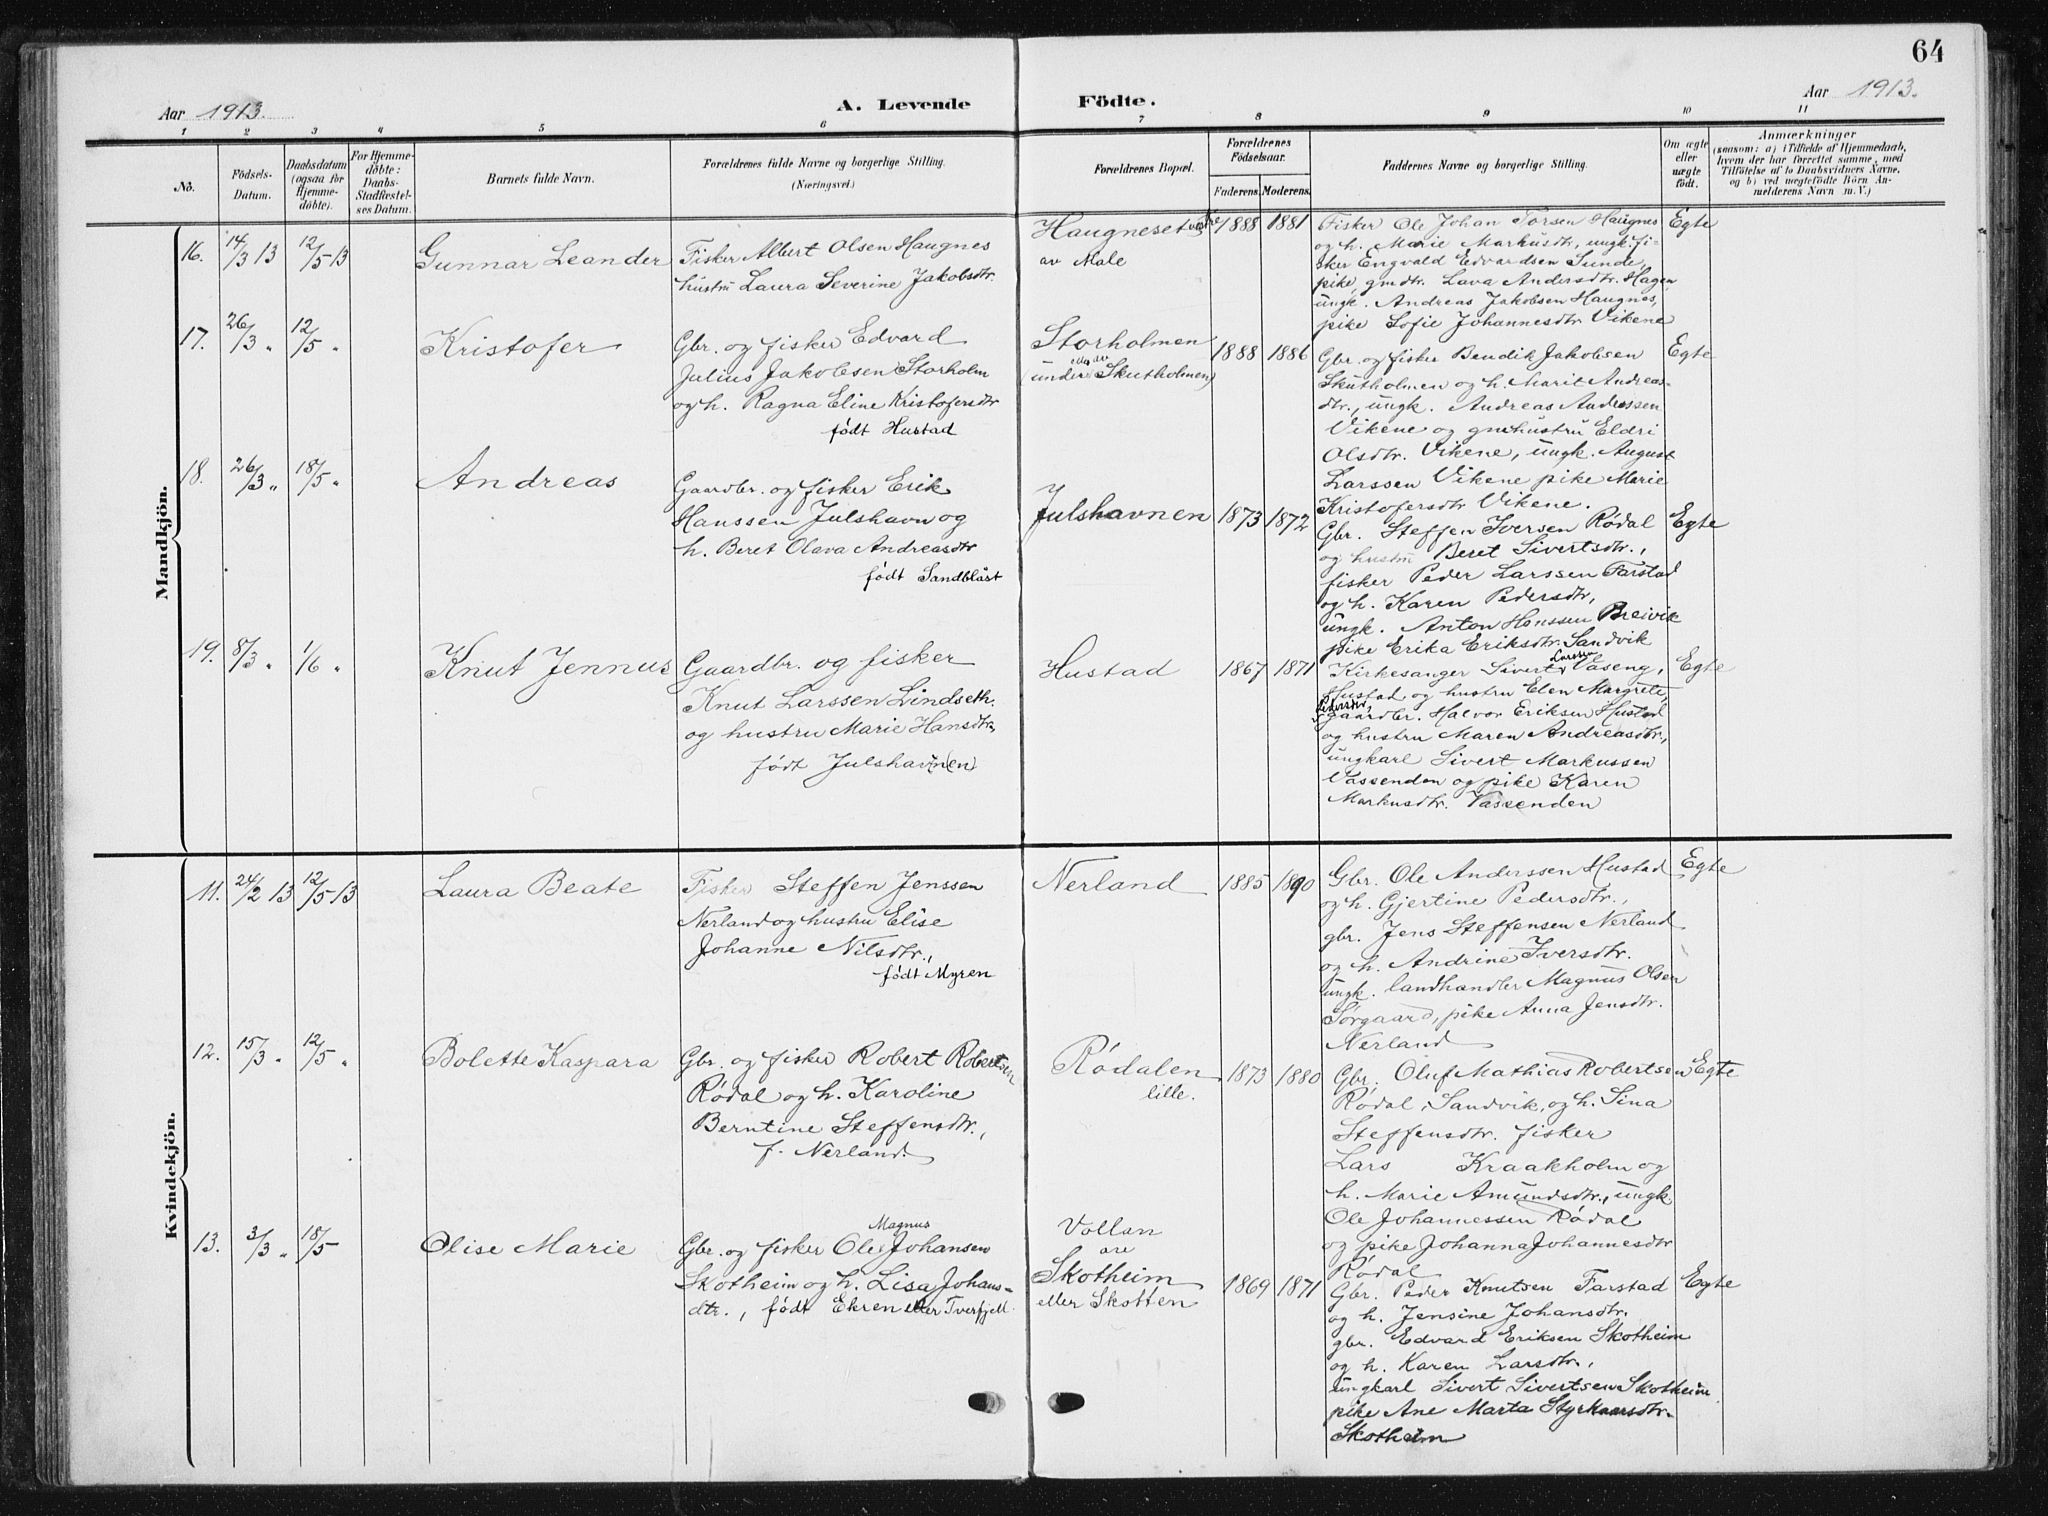 64
Aar 1913.
A. Levende
Födte.
Aar 1913.
1 2 3 4 5 6 7 8 9 10 11
No.
Födsels-
Datum.
Daabsdatum
(ogsaa for
Hjemme-
döbte).
For Hjemme-
döbte:
Daabs-
Stadfæstel-
ses Datum.
Barnets fulde Navn.
Forældrenes fulde Navne og borgerlige Stilling.
(Næringsvei.)
Forældrenes Bopæl.
Forældrenes
Födselsaar.
Faderens. Moderens.
Faddernes Navne og borgerlige Stilling.
Om ægte
eller
uægte
födt.
Anmærkninger
(saasom: a) i Tilfælde af Hjemmedaab,
hvem der har forrettet samme, med
Tilföielse af to Daabsvidners Navne,
og b) ved uægtefödte Börn An-
melderens Navn m. V.)
Mandkjön.
16. 14/3 13 12/5 13
Gunnar Leander
Fisker Albert Olsen Haugnes
hustru Laura Severine Jakobsdtr.
Haugneset vestre
av Male
1888 1881
Fisker Ole Johan Torsen Haugnes
og h. Marie Markusdtr, ungk. fi-
sker Engvald Edvardsen Sunde,
pike, gmdtr. Lava Andersdtr. Hagen
ungk. Andreas Jakobsen Haugnes,
pike Sofie Johannesdtr Vikene
Egte
17. 26/3 " 12/5 "
Kristofer
Gbr. og fisker Edvard
Julius Jakobsen Storholm
og h. Ragna Eline Kristofersdtr
født Hustad
Storholmen
(under Skutholmen)
1888 1886
Gbr. og fisker Bendik Jakobsen
Skutholmen og h. Marit Andreas-
dtr., ungk. Andreas Andressen
Vikene og gmhustru Eldri
Olsdtr. Vikene, ungk. August
Larssen Vikene pike Marie
Kristofersdtr Vikene.
Egte
18. 26/3 " 18/5 "
Andreas
Gaardbr. og fisker Erik
Hanssen Julshavn og
h. Beret Olava Andreasdtr
født Sandbläst
Julshavnen
1873 1872
Gbr. Steffen Iversen Rödal
og hustru Beret Sivertsdtr.,
fisker Peder Larssen Farstad
og h. Karen Pedersdtr,
ungk. Anton Hanssen Breivik
pike Erika Eriksdtr. Sandvik
Egte
19. 8/3 " 1/6 "
Knut Jennus
Gaardbr. og fisker
Knut Larssen Lindseth.
og hustru Marie Hansdtr,
født Julshavn(en)
Hustad
1867 1871
Kirkesanger Sivert Larssen Vaseng,
Hustad og hustru Elen Margrete
Pedersdtr,
gaardbr. Halvor Eriksen Hustad
og hustru Maren Andreasdtr.,
ungkarl Sivert Markussen
Vassenden og pike Karen
Markusdtr. Vassenden
Egte
Kvindekjön.
11. 24/2 13 12/5 13
Laura Beate
Fisker Steffen Jenssen
Nerland og hustru Elise
Johanne Nilsdtr.,
født Myren
Nerland
1885 1890
Gbr. Ole Anderssen Hustad
og h. Gjertine Pedersdtr.,
gbr. Jens Steffensen Nerland
og h. Andrine Iversdtr.
ungk. landhandler Magnus Olsen
Sorgaard, pike Anna Jensdtr.
Nerland
Egte
12. 15/3 " 12/5 "
Bolette Kaspara
Gbr. og fisker Robert Robertsen
Rödal og h. Karoline
Berntine Steffensdtr.,
f. Nerland.
Rödalen
lille.
1873 1880
Gbr. Oluf Mathias Robertsen
Rödal, Sandvik, og h. Sina
Steffensdtr. fisker
Lars Kraakholm og
h. Marie Amundsdtr., ungk.
Ole Johannessen Rödal
og pike Johanna Johannesdtr
Rödal
Egte
13. 3/3 " 18/5
Olise Marie
Gbr. og fisker Ole Magnus Johansen
Skotheim og h. Lisa Johans-
dtr., født Ekren eller Tverfjell.
Vollan
av
Skotheim
eller Skotten
1869 1871
Gbr. Peder Knutsen Farstad
og h. Jensine Johansdtr.
gbr. Edvard Eriksen Skotheim
og h. Karen Larsdtr.,
ungkarl Sivert Sivertsen Skotheim
pike Ane Marta Styrkaarsdtr.
Skotheim
Egte